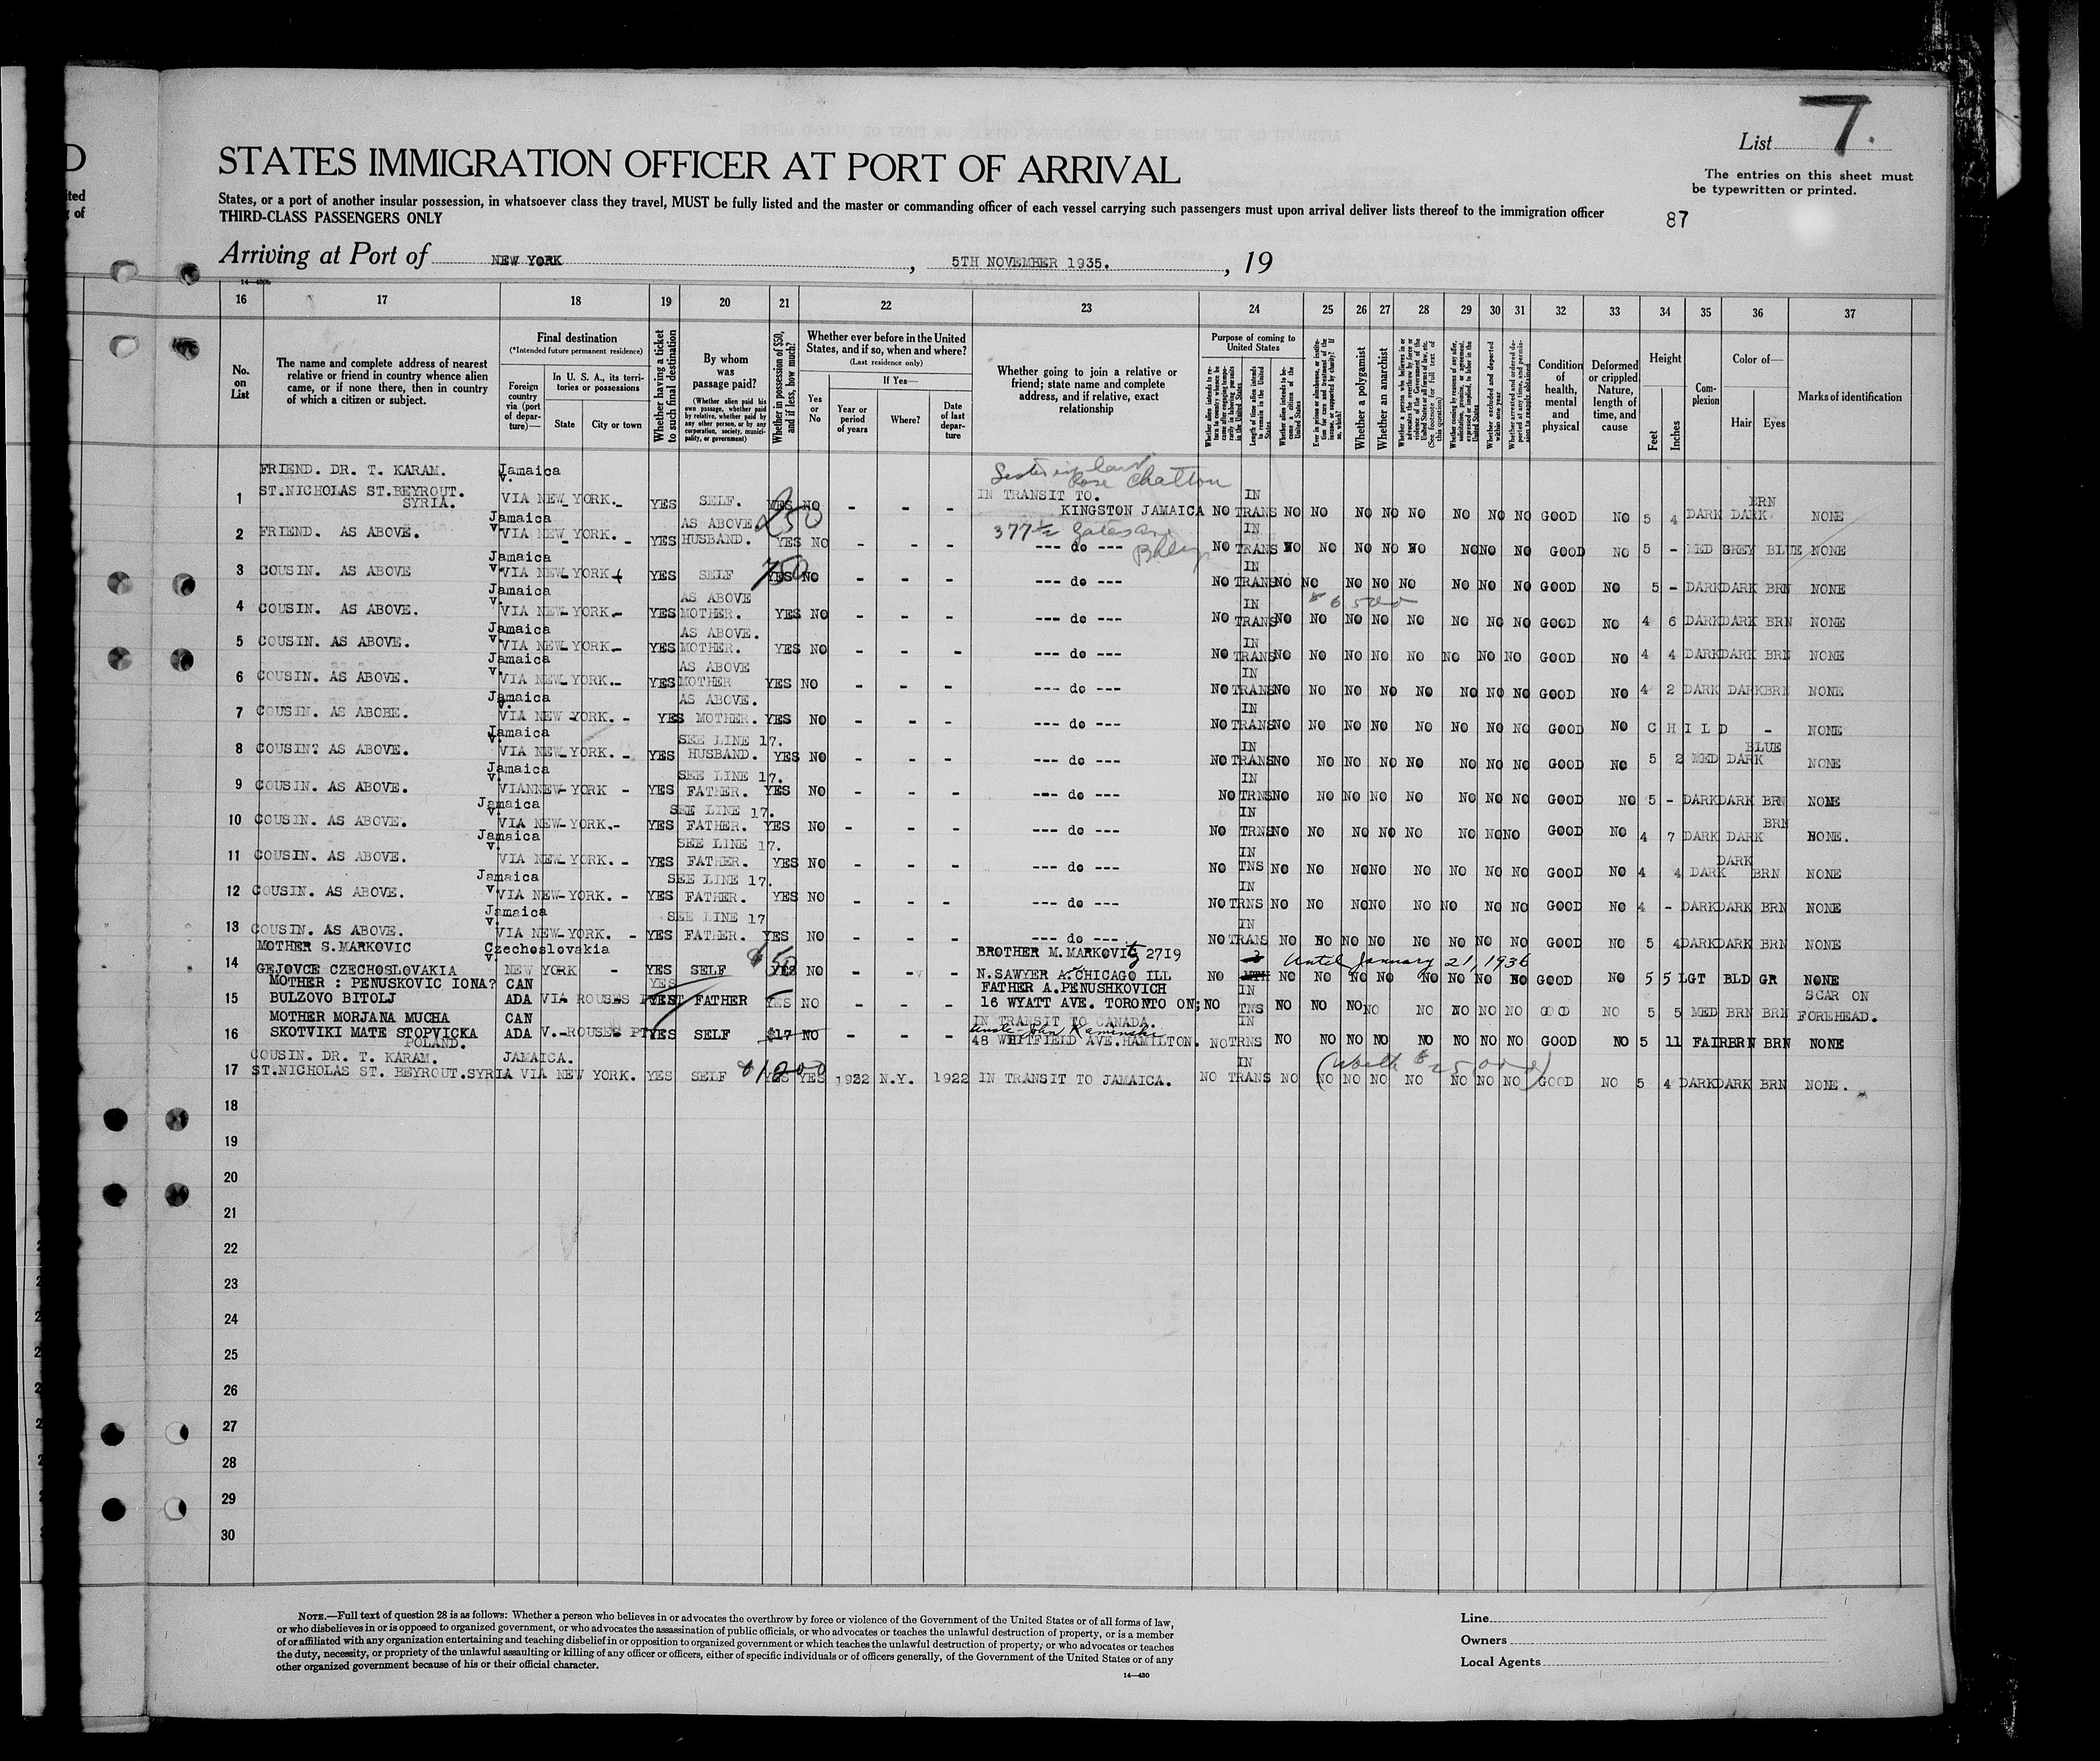 D
ited
g of
List 7.
STATES IMMIGRATION OFFICER AT PORT OF ARRIVAL
The entries on this sheet must
be typewritten or printed.
States, or a port of another insular possession, in whatsoever class they travel, MUST be fully listed and the master or commanding officer of each vessel carrying such passengers must upon arrival deliver lists thereof to the immigration officer
THIRD-CLASS PASSENGERS ONLY
87
Arriving at Port of NEW YORK , 5TH NOVEMBER 1935. , 19
16 17 18 19 20 21 22 23 24 25 26 27 28 29 30 31 32 33 34 35 36 37
No. on List
The name and complete address of nearest
relative or friend in country whence alien
came, or if none there, then in country
of which a citizen or subject.
Final destination
(*Intended future permanent residence)
Foreign country via (port of departure)—
In U. S. A., its territories or possessions
State City or town
Whether having a ticket to such final destination
By whom was passage paid?
(Whether alien paid his own passage, whether paid by relative, whether paid by any other person, or by any corporation, society, municipality, or government)
Whether in possession of $50, and if less, how much?
Whether ever before in the United States, and if so, when and where?
(Last residence only)
Yes or No
If Yes—
Year or period of years
Where?
Date of last departure
Whether going to join a relative or
friend; state name and complete
address, and if relative, exact
relationship
Purpose of coming to United States
Whether a polygamist
Whether an anarchist
Condition of health, mental and physical
Deformed or crippled. Nature, length of time, and cause
Height
Feet Inches
Complexion
Color of—
Hair Eyes
Marks of identification
Sister in law Rose Chatton
1 FRIEND. DR. T. KARAM. ST.NICHOLAS ST.BEYROUT. SYRIA. Jamaica v. VIA NEW YORK.- YES SELF. YES 250 NO - - - IN TRANSIT TO. KINGSTON JAMAICA NO IN TRANS NO NO NO NO NO NO NO NO GOOD NO 5 4 DARK DARK BRN NONE
2 FRIEND. AS ABOVE. Jamaica v. VIA NEW YORK. - YES AS ABOVE. HUSBAND. YES NO - - - 377½ Gates --- do --- NO IN TRANS NO NO NO NO NO NO NO NO GOOD NO 5 - MED GREY BLUE NONE
3 COUSIN. AS ABOVE Jamaica v. VIA NEW YORK YES SELF YES 750 NO - - - --- do --- NO IN TRANS NO NO NO NO NO NO NO NO GOOD NO 5 - DARK DARK BRN NONE
4 COUSIN. AS ABOVE. Jamaica v. VIA NEW-YORK.- YES AS ABOVE MOTHER. YES NO - - - --- do --- NO IN TRANS NO NO NO NO NO NO NO NO GOOD NO 4 6 DARK DARK BRN NONE
5 COUSIN. AS ABOVE. Jamaica v. VIA NEW-YORK.- YES AS ABOVE. MOTHER. YES NO - - - --- do --- NO IN TRANS NO NO NO NO NO NO NO NO GOOD NO 4 4 DARK DARK BRN NONE
6 COUSIN. AS ABOVE. Jamaica v. VIA NEW-YORK.- YES AS ABOVE MOTHER YES NO - - - --- do --- NO IN TRANS NO NO NO NO NO NO NO NO GOOD NO 4 2 DARK DARK BRN NONE
7 COUSIN. AS ABOBE. Jamaica v. VIA NEW YORK. - YES AS ABOVE. MOTHER. YES NO - - - --- do --- NO IN TRANS NO NO NO NO NO NO NO NO GOOD NO CHILD - NONE
8 COUSIN? AS ABOVE. Jamaica v. VIA NEW YORK. - YES SEE LINE 17. HUSBAND. YES NO - - - --- do --- NO IN TRANS NO NO NO NO NO NO NO NO GOOD NO 5 2 MED DARK BLUE NONE
9 COUSIN. AS ABOVE. Jamaica v. VIANNEW-YORK - YES SEE LINE 17. FATHER. YES NO - - - --- do --- NO IN TRNS NO NO NO NO NO NO NO NO GOOD NO 5 - DARK DARK BRN NONE
10 COUSIN. AS ABOVE. Jamaica v. VIA NEW-YORK.- YES SEE LINE 17. FATHER. YES NO - - - --- do --- NO IN TRNS NO NO NO NO NO NO NO NO GOOD NO 4 7 DARK DARK BRN NONE.
11 COUSIN. AS ABOVE. Jamaica v. VIA NEW-YORK. - YES SEE LINE 17. FATHER. YES NO - - - --- do --- NO IN TNS NO NO NO NO NO NO NO NO GOOD NO 4 4 DARK DARK BRN NONE
12 COUSIN. AS ABOVE. Jamaica v. VIA NEW-YORK. - YES SEE LINE 17. FATHER. YES NO - - - --- do --- NO IN TRNS NO NO NO NO NO NO NO NO GOOD NO 4 - DARK DARK BRN NONE
13 COUSIN. AS ABOVE. Jamaica v. VIA NEW-YORK. - YES SEE LINE 17 FATHER. YES NO - - - --- do --- NO IN TRANS NO NO NO NO NO NO NO NO GOOD NO 5 4 DARK DARK BRN NONE
14 MOTHER S.MARKOVIC GEJOVCE CZECHOSLOVAKIA Czechoslovakia v NEW YORK - YES SELF $50 YES NO - - - BROTHER M.MARKOVITZ 2719 N.SAWYER A.CHICAGO ILL NO Until January 21, 1936 NO NO NO NO NO NO NO NO GOOD NO 5 5 LGT BLD GR NONE
15 MOTHER : PENUSKOVIC IONA? BULZOVO BITOLJ CAN ADA VIA ROUSES YES FATHER YES NO - - - FATHER A.PENUSHKOVICH 16 WYATT AVE. TORONTO ON; NO IN TNS NO NO NO NO NO NO NO NO GOOD NO 5 5 MED BRN BRN SCAR ON FOREHEAD.
16 MOTHER MORJANA MUCHA SKOTVIKI MATE STOPVICKA POLAND. CAN ADA V.-ROUSES PT YES SELF $17 NO - - - IN TRANSIT TO CANADA. Uncle - John Kaminski 48 WHITFIELD AVE.HAMILTON. NO IN TRNS NO NO NO NO NO NO NO NO GOOD NO 5 11 FAIR BRN BRN NONE
17 COUSIN. DR. T. KARAM. ST.NICHOLAS ST. BEYROUT.SYRIA JAMAICA. VIA NEW YORK. YES SELF $1200 YES YES 1922 N.Y. 1922 IN TRANSIT TO JAMAICA. NO IN TRANS NO (Worth $25,000) NO NO NO NO NO NO NO GOOD NO 5 4 DARK DARK BRN NONE.
18
19
20
21
22
23
24
25
26
27
28
29
30
NOTE.—Full text of question 28 is as follows: Whether a person who believes in or advocates the overthrow by force or violence of the Government of the United States or of all forms of law,
or who disbelieves in or is opposed to organized government, or who advocates the assassination of public officials, or who advocates or teaches the unlawful destruction of property, or is a member
of or affiliated with any organization entertaining and teaching disbelief in or opposition to organized government or which teaches the unlawful destruction of property, or who advocates or teaches
the duty, necessity, or propriety of the unlawful assaulting or killing of any officer or officers, either of specific individuals or of officers generally, of the Government of the United States or of any
other organized government because of his or their official character.
14—430
Line
Owners
Local Agents